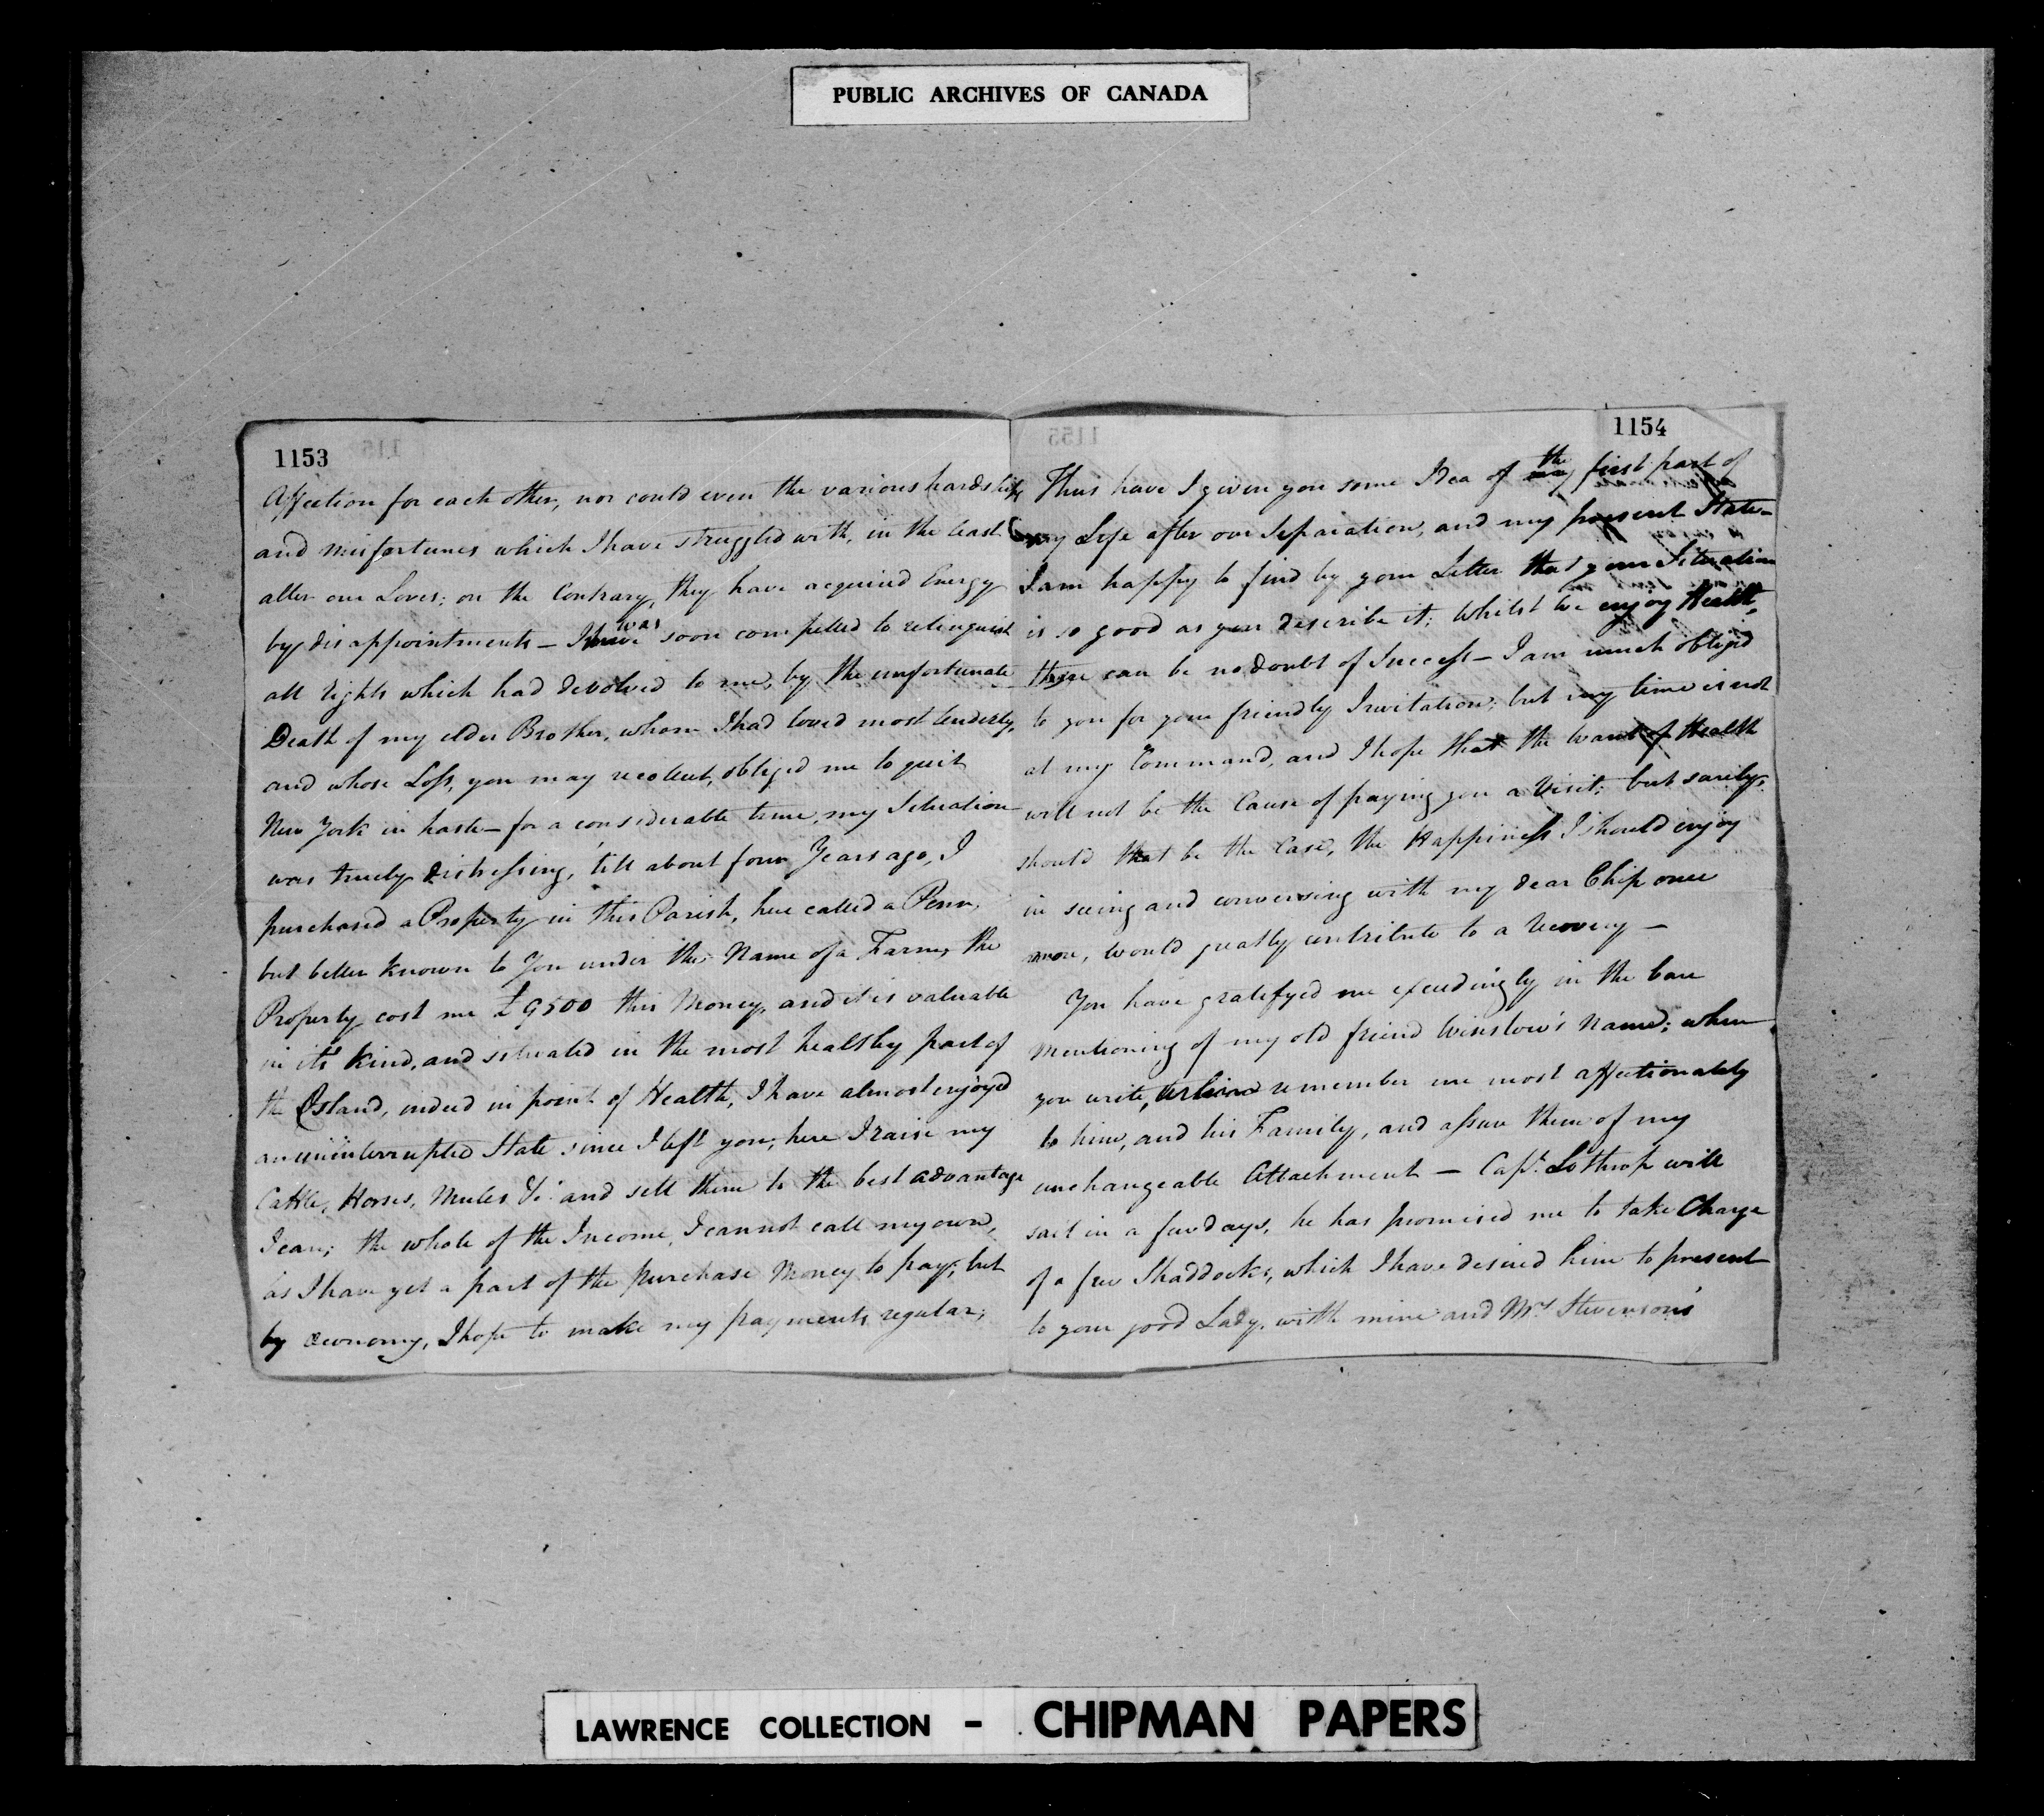 PUBLIC ARCHIVES OF CANADA
1153
Affection for each other, nor could even the various hardships
and misfortunes which I have struggled with, in the least
alter our Loves; on the Contrary, they have acquired Energy
by disappointments – I was soon compelled to relinquish
all rights which had devolved to me, by the unfortunate
Death of my elder Brother, whom I had loved most tenderly,
and whose Loss, you may recollect, obliged me to quit
New York in haste – for a considerable time, my Situation
was truely distressing, till about four Years ago, I
purchased a Property in this Parish, here called a Penn,
but better known to You under the Name of a Farm, the
Property cost me £9500 this Money, and it is valuable
in it's kind, and situated in the most healthy part of
the Island, indeed in point of Health, I have almost enjoyed
an uninterrupted State since I left you; here I raise my
Cattle, Horses, Mules &c. and sell them to the best advantage
I can; the whole of the Income, I cannot call my own,
as I have yet a part of the purchase Money to pay; but
by œconomy, I hope to make my payments regular;
1154
Thus have I given you some Idea of the first part of
my Life after our Separation, and my present State –
I am happy to find by your Letter that your Situation
is so good as you describe it; Whilst we enjoy Health,
there can be no doubt of Success – I am much obliged
to you for your friendly Invitation; but my time is not
at my Command, and I hope that the want of Health
will not be the Cause of paying you a Visit; but surely,
should that be the Case, the Happiness I should enjoy
in seeing and conversing with my dear Chip once
more, would greatly contribute to a recovery –
You have gratifyed me exceedingly in the bare
Mentioning of my old friend Winslow's Name; when
you write, remember me most affectionately
to him, and his Family, and assure them of my
unchangeable Attachment – Capt. Lothrop will
sail in a few days, he has promised me to take Charge
of a few Shaddocks, which I have desired him to present
to your good Lady, with mine and Mrs. Stevenson's
LAWRENCE COLLECTION – CHIPMAN PAPERS